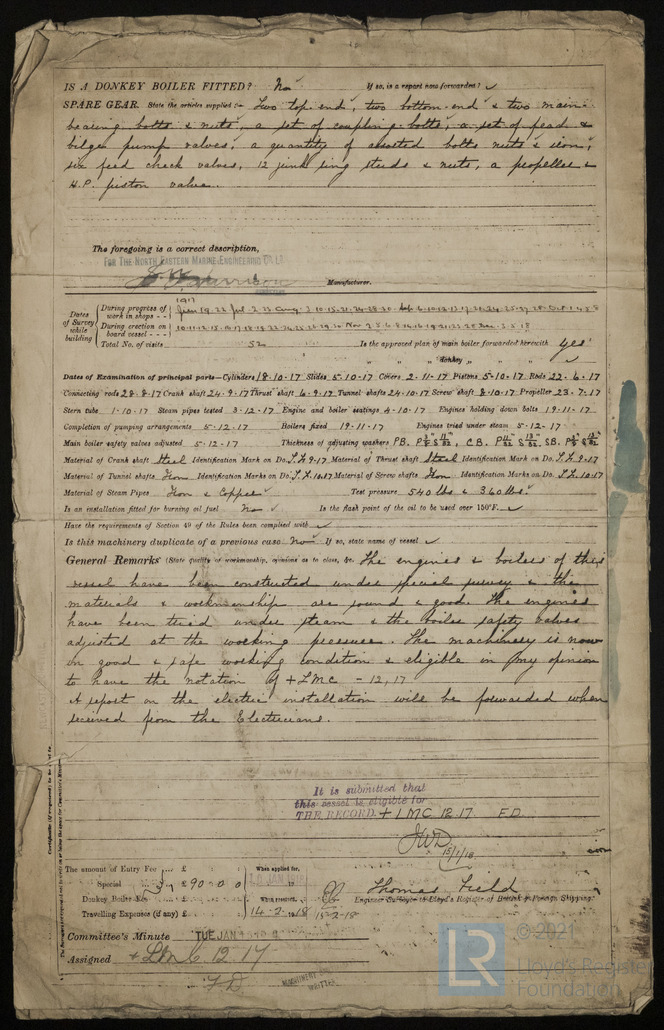 IS A DONKEY BOILER FITTED? No If so, is a report now forwarded? ✓
SPARE GEAR. State the articles supplied:— Two top end, two bottom end & two main
bearing bolts & nuts, a set of coupling bolts, a set of feed &
bilge pump valves, a quantity of assorted bolts nuts & iron,
six feed check valves, 12 junk ring studs & nuts, a propeller &
H.P. piston valve.
The foregoing is a correct description,
FOR THE NORTH EASTERN MARINE ENGINEERING Co. Ld.
Manufacturer.
1917
Dates of Survey while building
During progress of work in shops - -
During erection on board vessel - - -
Total No. of visits 52 Is the approved plan of main boiler forwarded herewith Yes
" " " donkey " " ✓
Dates of Examination of principal parts—Cylinders 18-10-17 Slides 5-10-17 Covers 2-11-17 Pistons 5-10-17 Rods 22-6-17
Connecting rods 28-8-17 Crank shaft 24-9-17 Thrust shaft 6-9-17 Tunnel shafts 24-10-17 Screw shaft 8-10-17 Propeller 23-7-17
Stern tube 1-10-17 Steam pipes tested 3-12-17 Engine and boiler seatings 4-10-17 Engines holding down bolts 19-11-17
Completion of pumping arrangements 5-12-17 Boilers fixed 19-11-17 Engines tried under steam 5-12-17
Main boiler safety valves adjusted 5-12-17 Thickness of adjusting washers
Material of Crank shaft Steel Identification Mark on Do. T.F. 9-17 Material of Thrust shaft Steel Identification Mark on Do. T.F. 9-17
Material of Tunnel shafts Iron Identification Marks on Do. T.F. 10-17 Material of Screw shafts Iron Identification Marks on Do. T.F. 10-17
Material of Steam Pipes Iron & Copper ✓ Test pressure 540 lbs & 360 lbs. ✓
Is an installation fitted for burning oil fuel No ✓ Is the flash point of the oil to be used over 150°F. ✓
Have the requirements of Section 49 of the Rules been complied with ✓
Is this machinery duplicate of a previous case No If so, state name of vessel ✓
General Remarks (State quality of workmanship, opinions as to class, &c. The engines & boilers of this
vessel have been constructed under special survey & the
materials & workmanship are sound & good. The engines
have been tried under steam & the boiler safety valves
adjusted at the working pressure. The machinery is now
in good & safe working condition & eligible in my opinion
to have the notation of + LMC - 12,17
A report on the electric installation will be forwarded when
received from the Electricians.
It is submitted that
this vessel is eligible for
THE RECORD. + LMC 12.17 F.D.
JWD
15/1/18
The amount of Entry Fee ... £ : : When applied for,
Special ... £ 90 : 0 : 0
Donkey Boiler Fee ... £ : : When received,
Travelling Expenses (if any) £ : : 14-2-1918 15-2-18
Thomas Field
Engineer Surveyor to Lloyd's Register of British & Foreign Shipping.
Committee's Minute TUE. JAN
Assigned + LMC 12.17
F.D.
MACHINERY
WRITTEN
LR © 2021
Lloyd's Register
Foundation